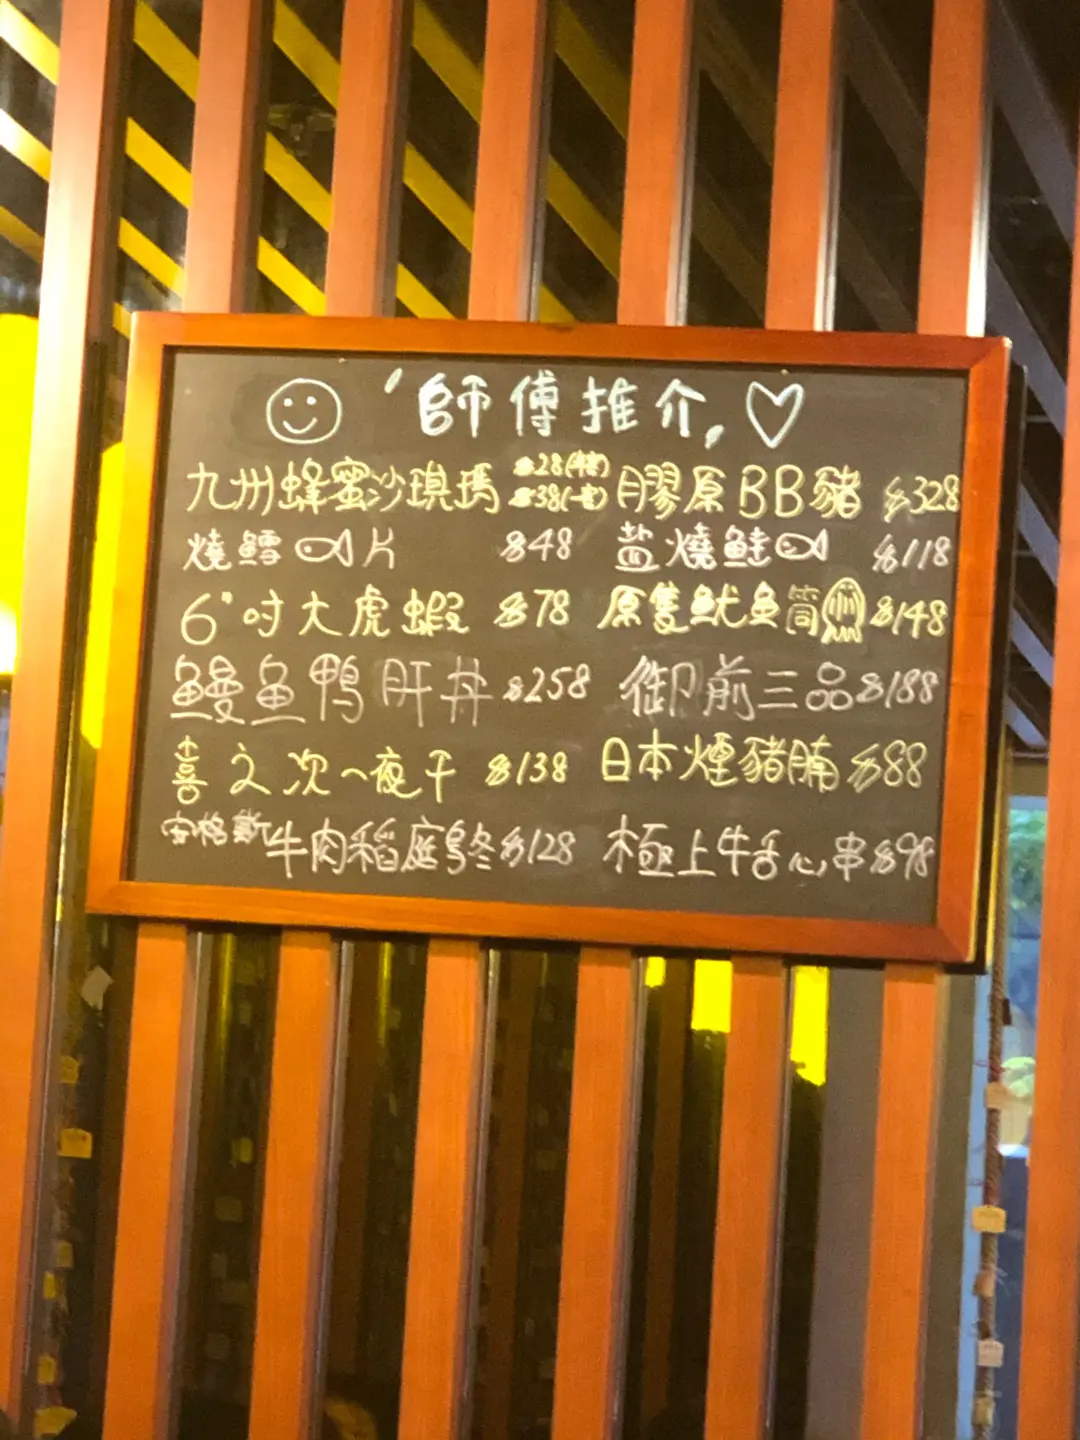 師傅推介
九州蜂蜜沙琪瑪 $28(半客) $38(一客) 膠原BB豬 $328
燒鱈片 $48 盐燒鮭 $118
6"吋大虎蝦 $78 原隻魷魚筒 $148
鰻魚鴨肝丼 $258 御前三品 $188
喜之次一夜干 $138 日本煙豬腩 $88
安格斯牛肉稻庭烏冬 $128 極上牛舌心串 $98